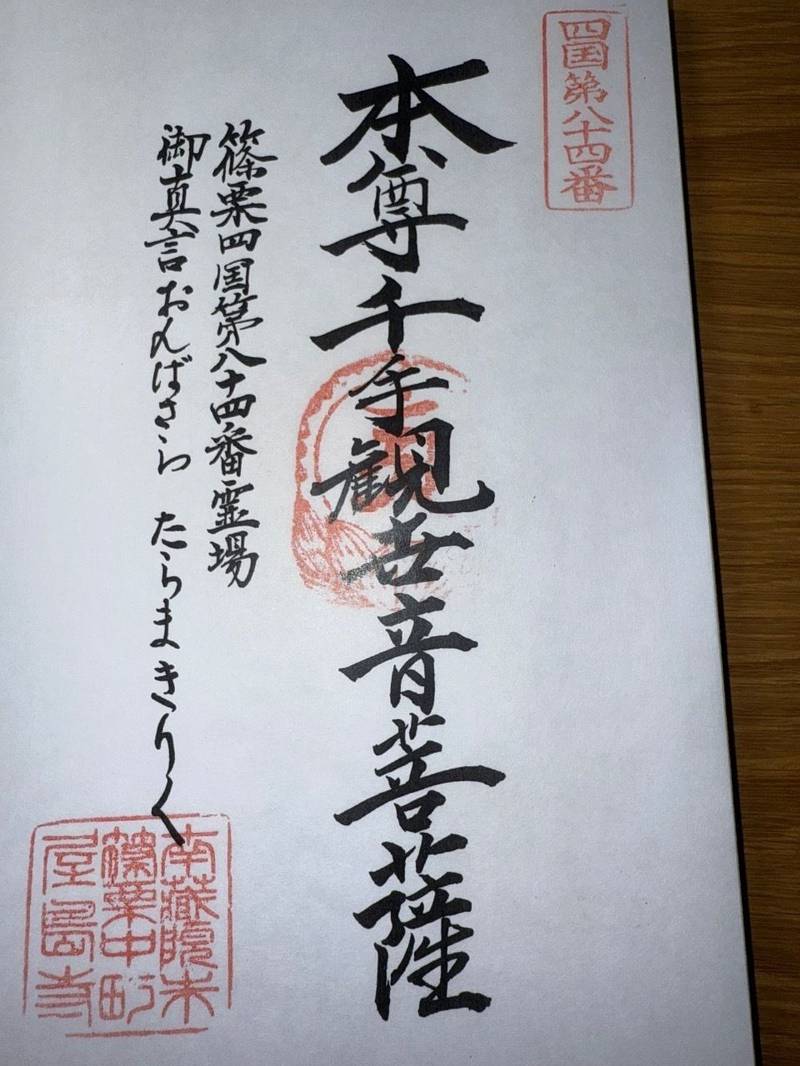 四国第八十四番
本尊千手観世音菩薩
篠栗四国第八十四番霊場
御真言おんばさら たらまきりく
南蔵院末
篠栗中町
屋島寺